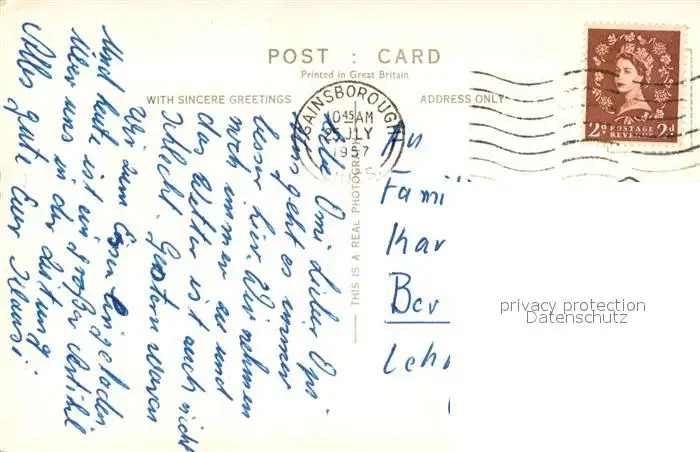 POST : CARD
Printed in Great Britain
WITH SINCERE GREETINGS
ADDRESS ONLY
THIS IS A REAL PHOTOGRAPH
GAINSBOROUGH
10 45 AM
25 JLY
1957
POSTAGE
REVENUE
2D 2D
Liebe Omi, lieber Opi.
Uns geht es immer
besser hier. Wir nehmen
noch immer zu und
das Wetter ist auch nicht
schlecht. Gestern waren
Wir zum Essen eingeladen
Und heute ist ein großer Artikel
über uns in der Zeitung
Alles gute Eure
An
Fami
Kar
Ber
Lehr
privacy protection
Datenschutz